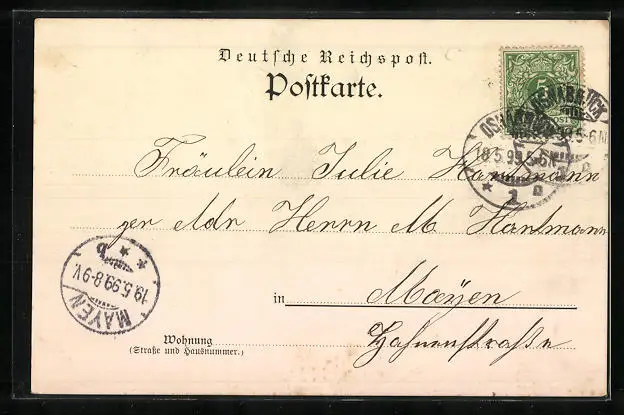 Deutsche Reichspost.
Postkarte.
5
OSNABRÜCK
18.5.99.5-6N.
1a
Fräulein Julie Hanlmann
per Adr Herrn M. Hanlmann
in Mayen
Wohnung
(Straße und Hausnummer.)
Hahnenstraße
MAYEN
19.5.99.8-9V.
b